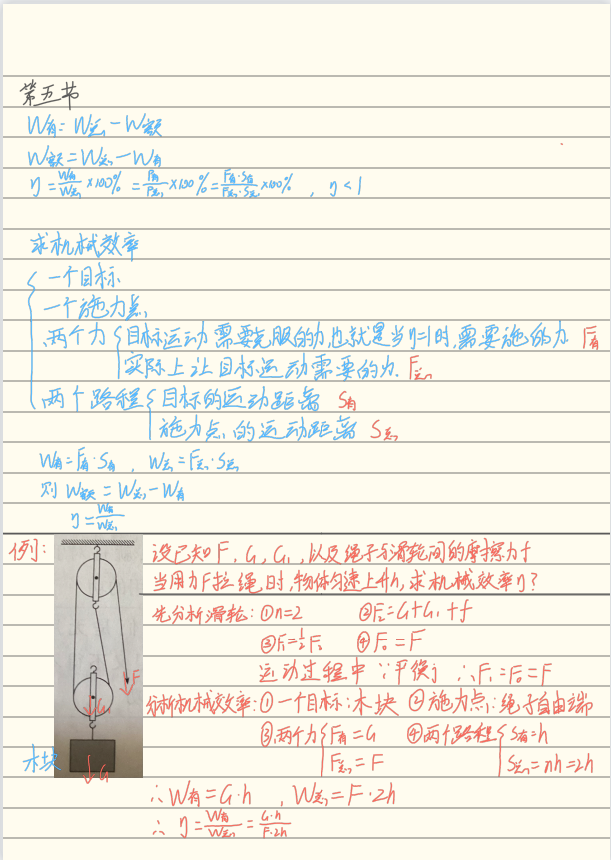 第五节
W有=W总-W额
W额=W总-W有
η=W有/W总×100%=P有/P总×100%=F有·S有/F总·S总×100%,η<1
求机械效率
一个目标
一个施力点
两个力{目标运动需要克服的力,也就是当η=1时,需要施的力 F有
实际上让目标运动需要的力. F总
两个路程{目标的运动距离 S有
施力点的运动距离 S总
W有=F有·S有, W总=F总·S总
则 W额=W总-W有
η=W有/W总
例: 设已知F,G,G₁,以及绳子与滑轮间的摩擦力f
当用力F拉绳时,物体匀速上升h,求机械效率η?
先分析滑轮:①n=2 ②F₂=G+G₁+f
③F₁=½F₂ ④F₀=F
运动过程中∵平衡 ∴F₁=F₀=F
分析机械效率:①一个目标:木块 ②施力点:绳子自由端
③两个力{F有=G ④两个路程{S有=h
F总=F S总=nh=2h
F
G₁
木块
G
∴W有=G·h, W总=F·2h
∴η=W有/W总=G·h/F·2h